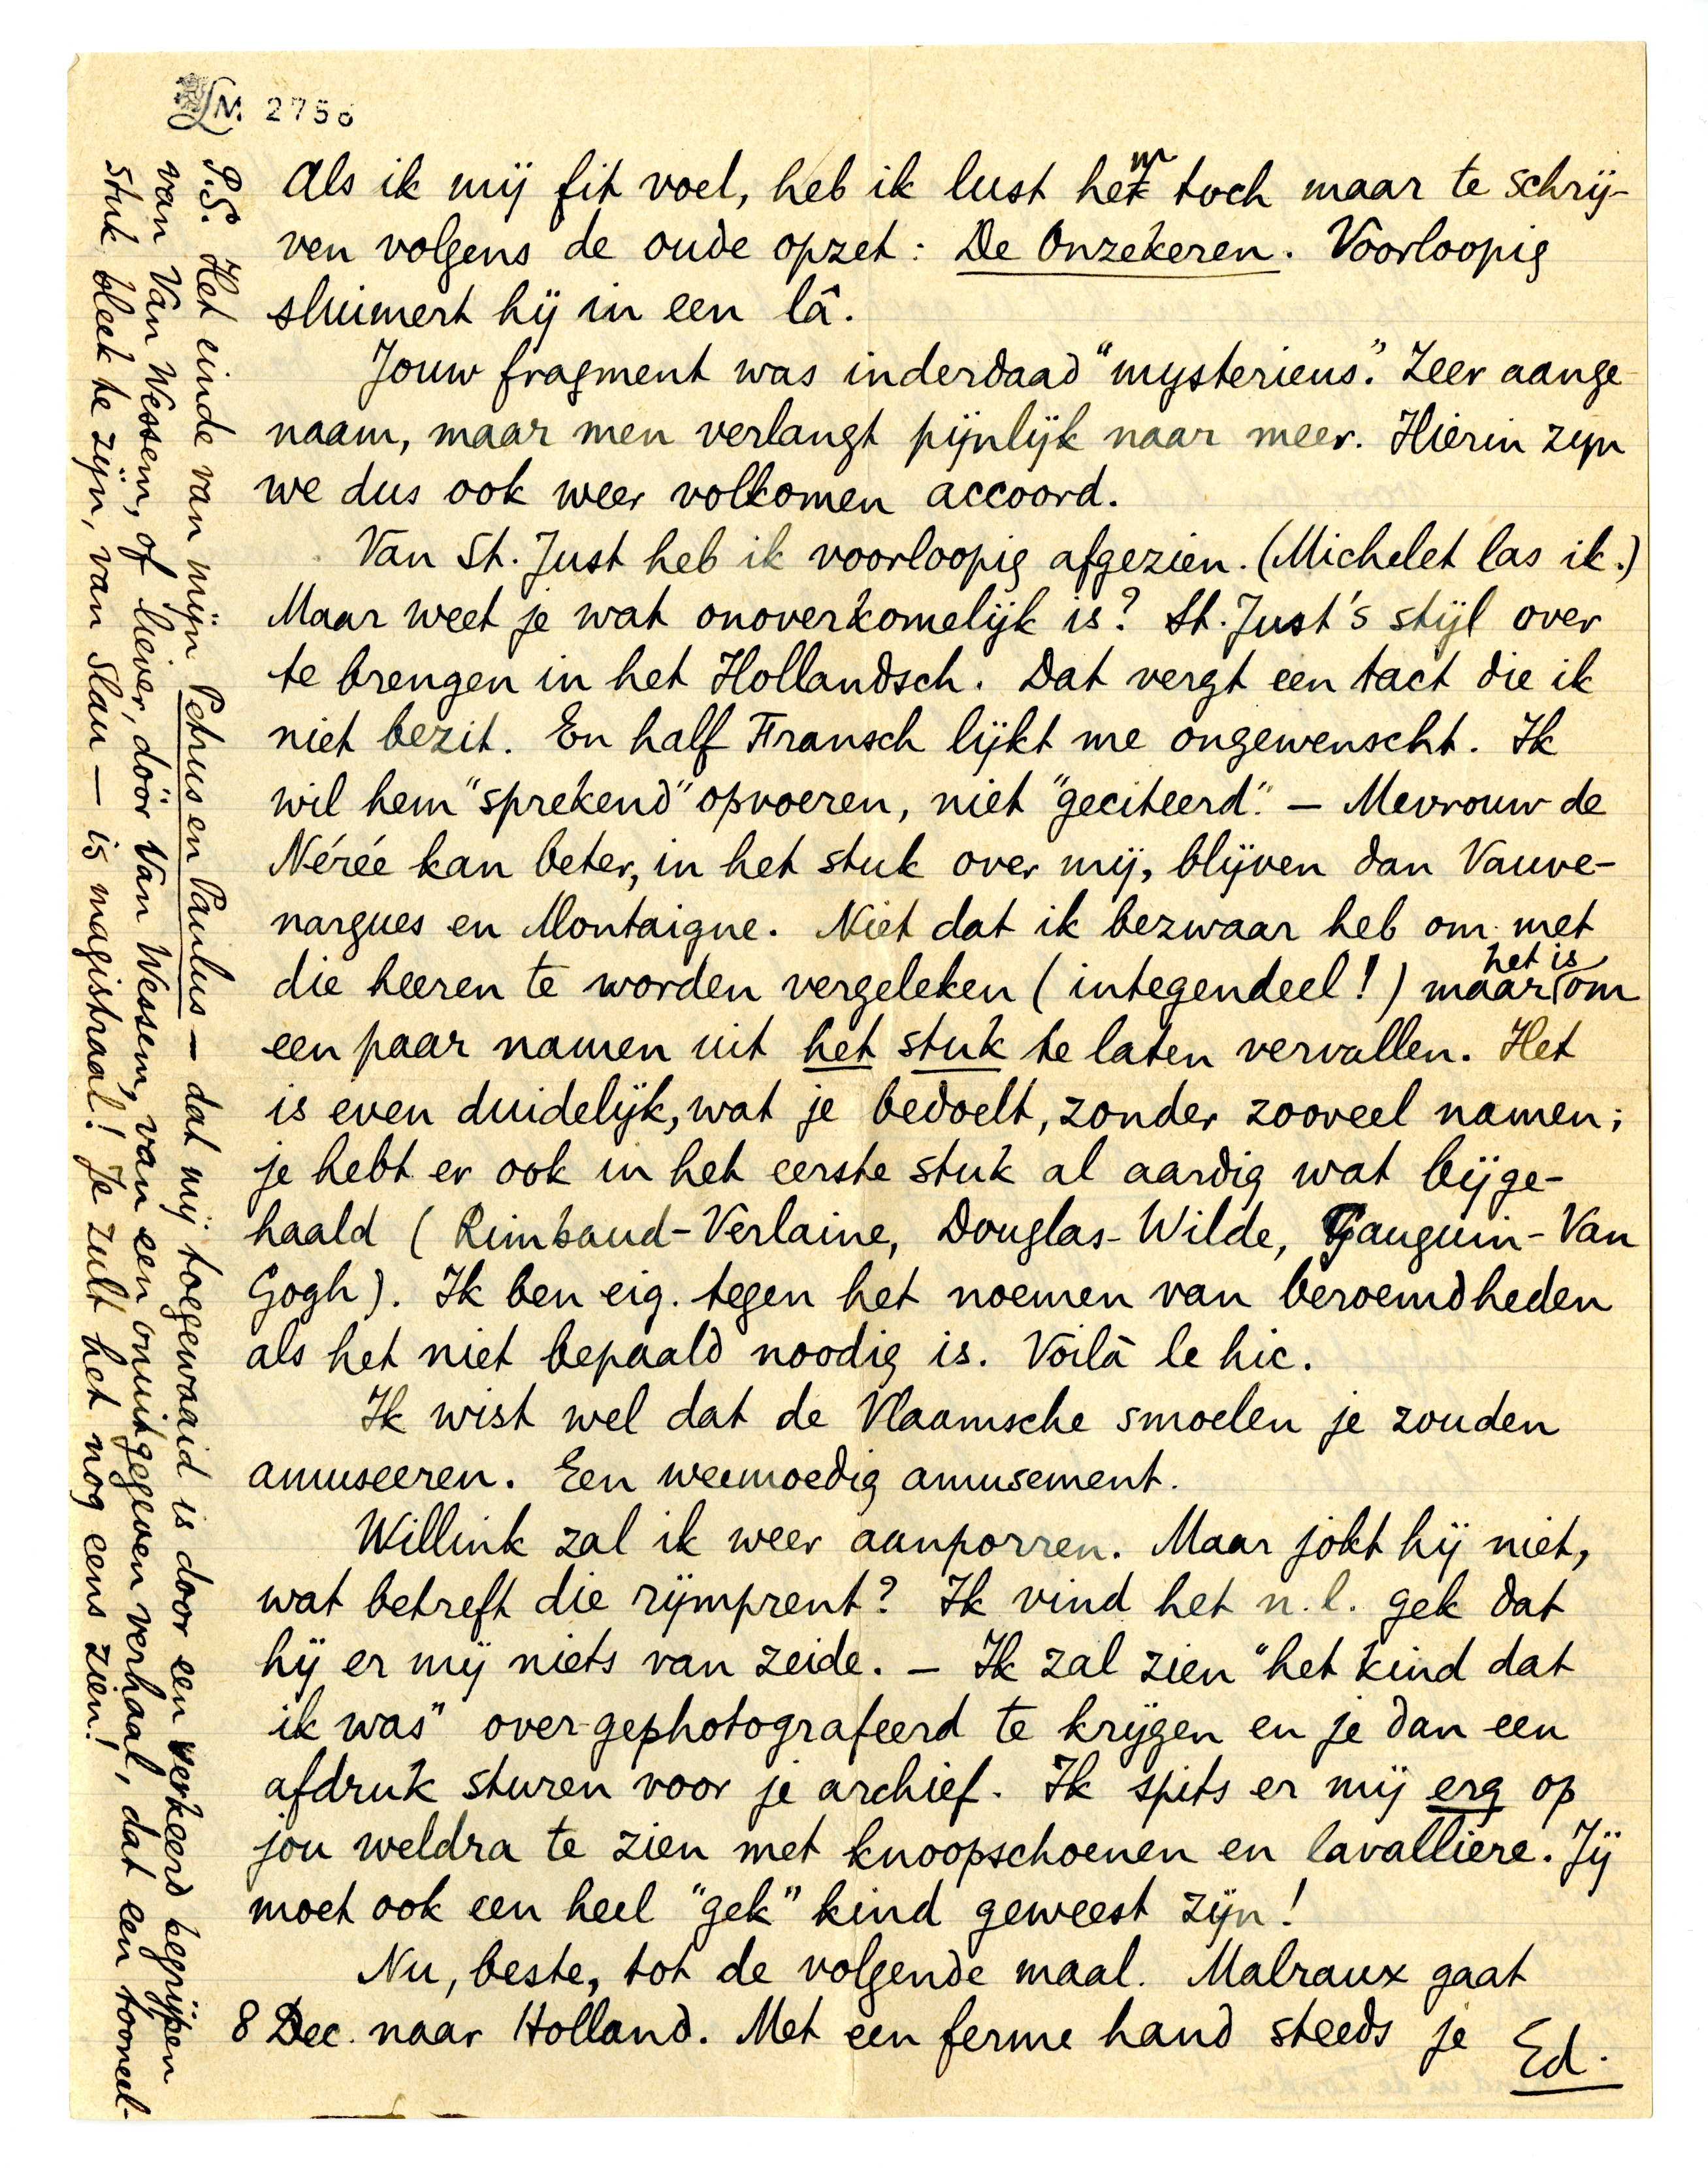 LM. 2756
Als ik mij fit voel, heb ik lust hem toch maar te schrij-
ven volgens de oude opzet: De Onzekeren. Voorloopig
sluimert hij in een lâ.
Jouw fragment was inderdaad "mysterieus". Zeer aange
naam, maar men verlangt pijnlijk naar meer. Hierin zijn
we dus ook weer volkomen accoord.
Van St. Just heb ik voorloopig afgezien. (Michelet las ik.)
Maar weet je wat onoverkomelijk is? St. Just's stijl over
te brengen in het Hollandsch. Dat vergt een tact die ik
niet bezit. En half Fransch lijkt me ongewenscht. Ik
wil hem "sprekend" opvoeren, niet "geciteerd". — Mevrouw de
Nérée kan beter, in het stuk over mij, blijven dan Vauve-
nargues en Montaigne. Niet dat ik bezwaar heb om met
die heeren te worden vergeleken (integendeel!) maar het is om
een paar namen uit het stuk te laten vervallen. Het
is even duidelijk, wat je bedoelt, zonder zooveel namen;
je hebt er ook in het eerste stuk al aardig wat bijge-
haald (Rimbaud-Verlaine, Douglas-Wilde, Gauguin-Van
Gogh). Ik ben eig. tegen het noemen van beroemdheden
als het niet bepaald noodig is. Voilà le hic.
Ik wist wel dat de Vlaamsche smoelen je zouden
amuseeren. Een weemoedig amusement.
Willink zal ik weer aanporren. Maar jokt hij niet,
wat betreft die rijmprent? Ik vind het n.l. gek dat
hij er mij niets van zeide. — Ik zal zien "het kind dat
ik was" over-gephotografeerd te krijgen en je dan een
afdruk sturen voor je archief. Ik spits er mij erg op
jou weldra te zien met knoopschoenen en lavallière. Jij
moet ook een heel "gek" kind geweest zijn!
Nu, beste, tot de volgende maal. Malraux gaat
8 Dec. naar Holland. Met een ferme hand steeds je
Ed.
P.S. Het einde van mijn Petrus en Paulus — dat mij toegewaaid is door een verkeerd begrijpen
van Van Wessem, of liever, dóór Van Wessem, van een onuitgegeven verhaal, dat een tooneel-
stuk bleek te zijn, van Slau — is magistraal! Je zult het nog eens zien!